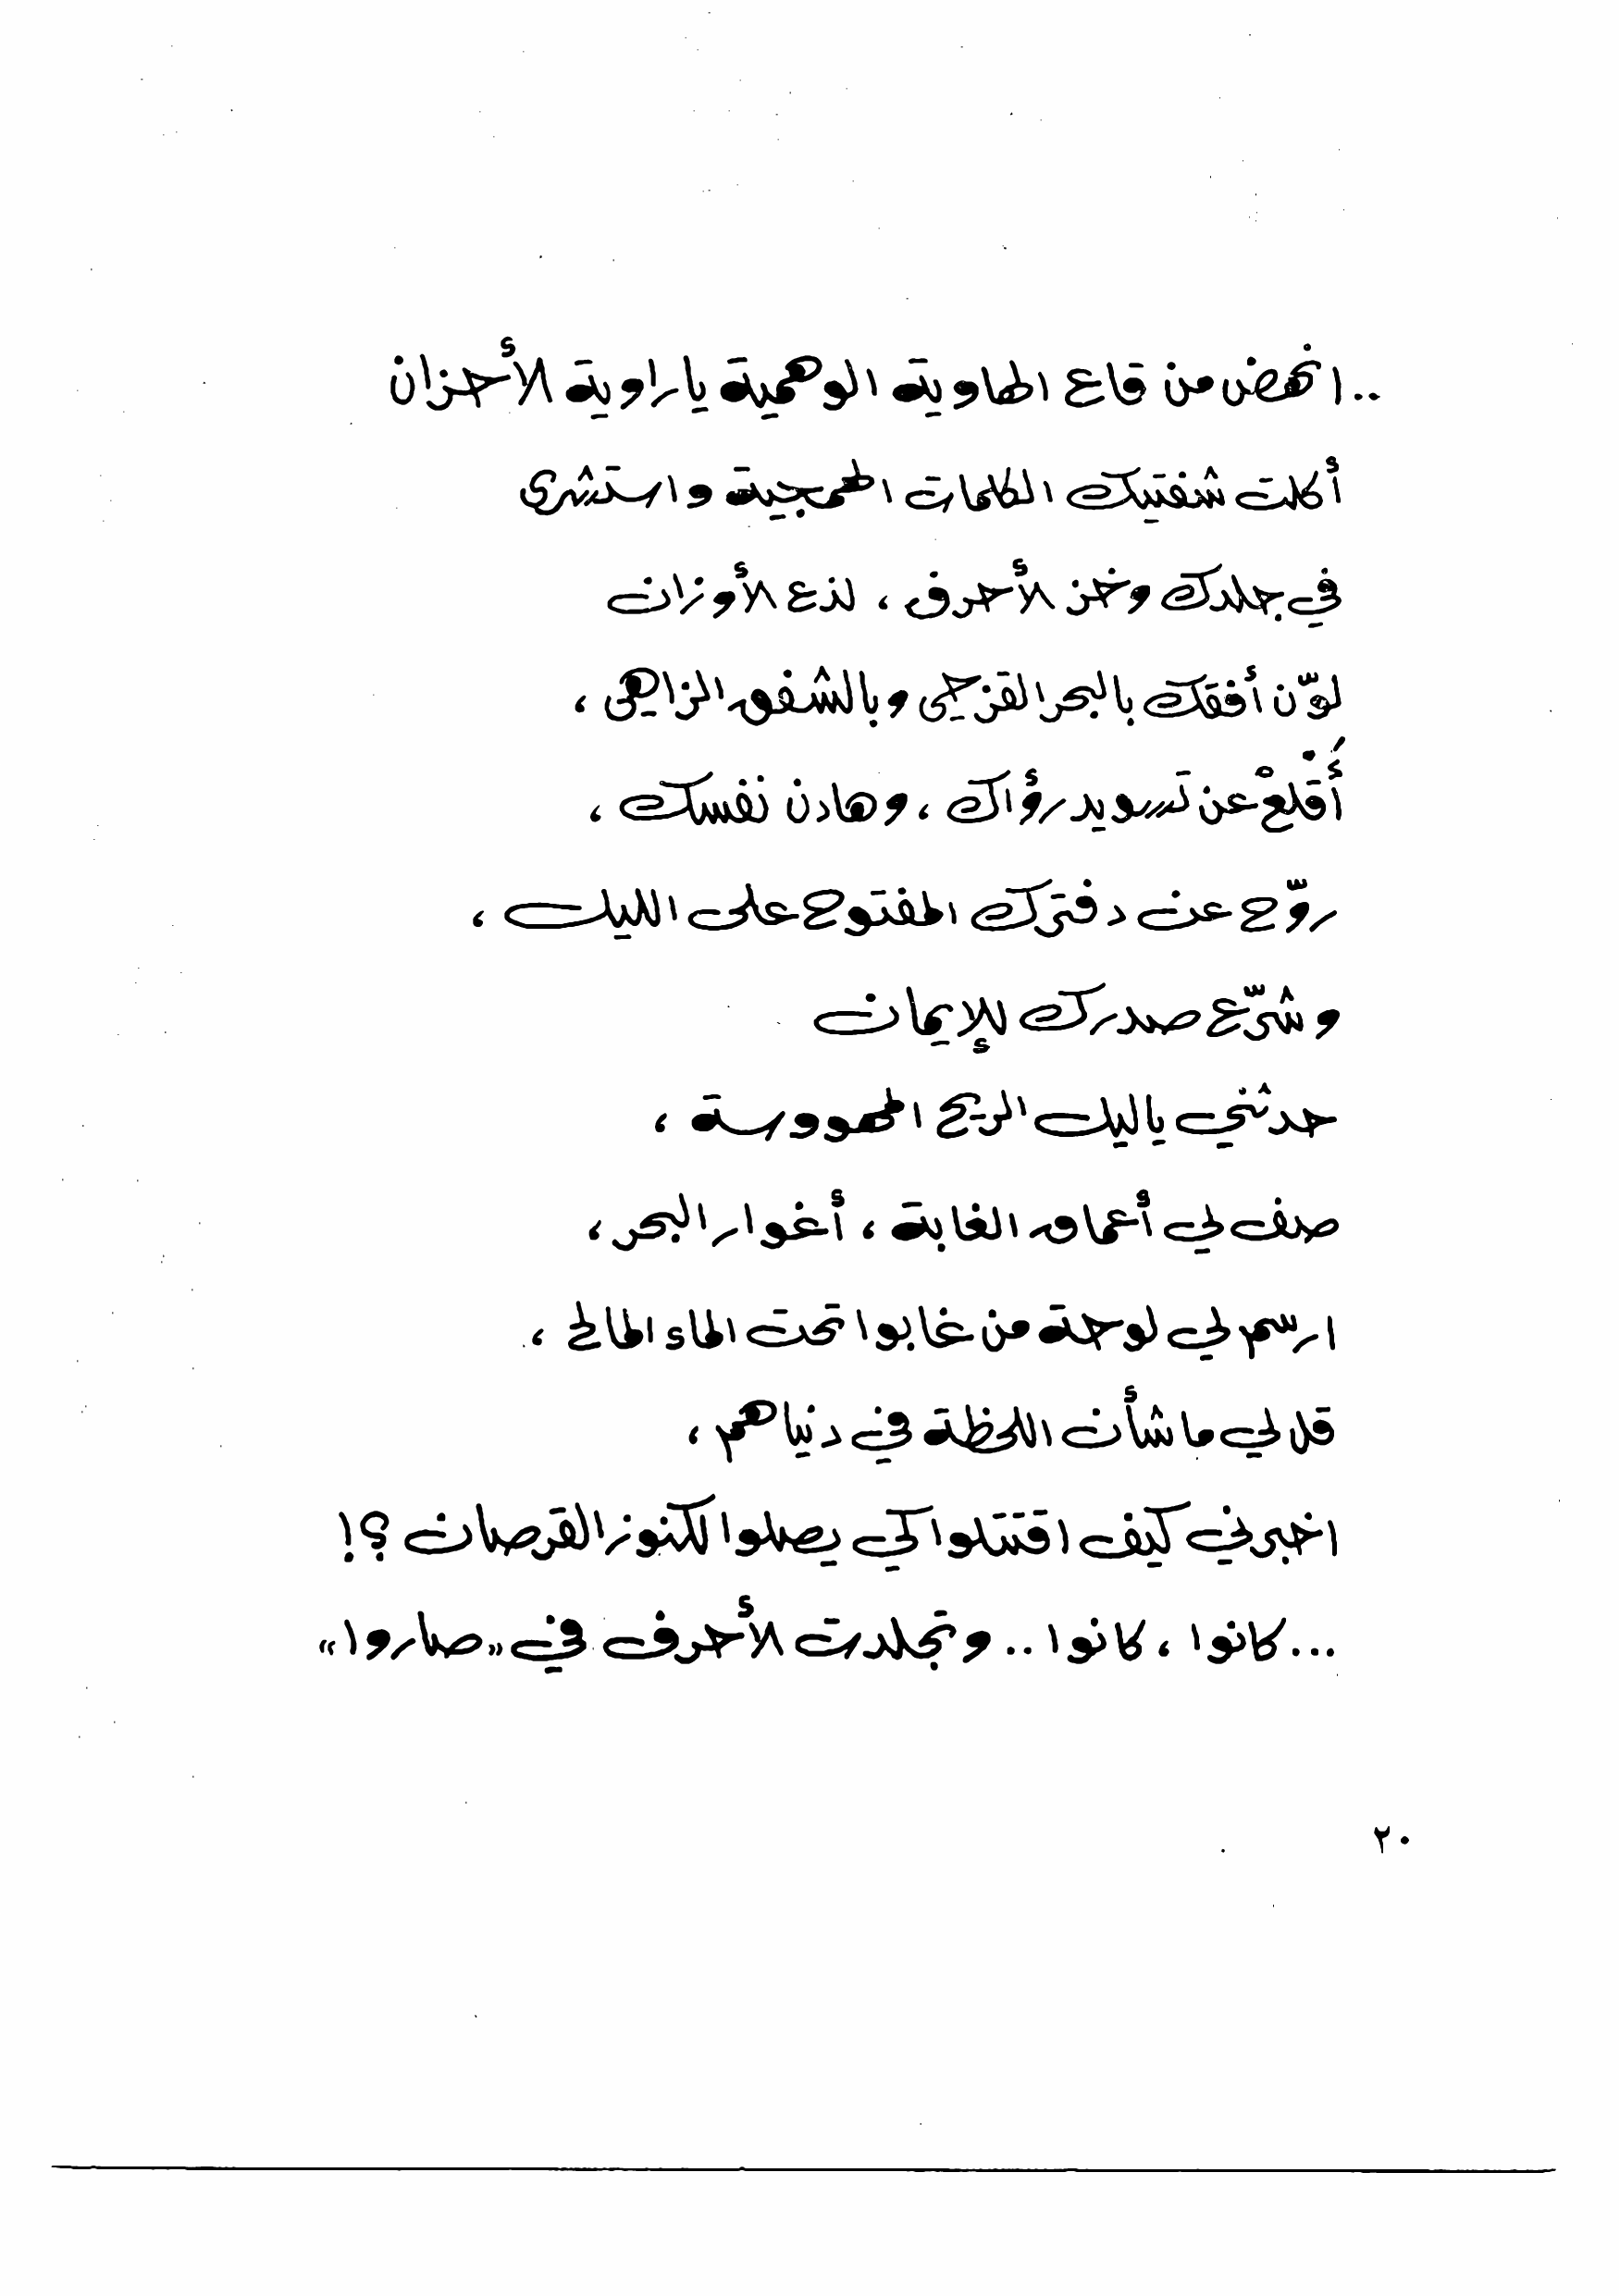 ..انهض من قاع الهاوية الوهمية يا راوية الأحزان
أكلت شفتيك الكلمات الهمجية واستشرى
في جلدك وخز الأحرف ، لذع الأوزان
لوّن أفقك بالبحر القزحي وبالشفق الزاهي ،
أَقْلعْ عن تسويد رؤاك ، وهادن نفسك ،
روّح عن دفترك المفتوح على الليل ،
وشرّع صدرك للإيمان
حدثني ياليل الريح المهووسة ،
صف لي أعماق الغابة ، أغوار البحر ،
ارسم لي لوحة من غابوا تحت الماء المالح ،
قل لي ما شأن اللحظة في دنياهم ،
اخبرني كيف اقتتلوا كي يصلوا لكنوز القرصان ؟!
...كانوا ، كانوا .. وتجلدت الأحرف في «صاروا»
٢٠